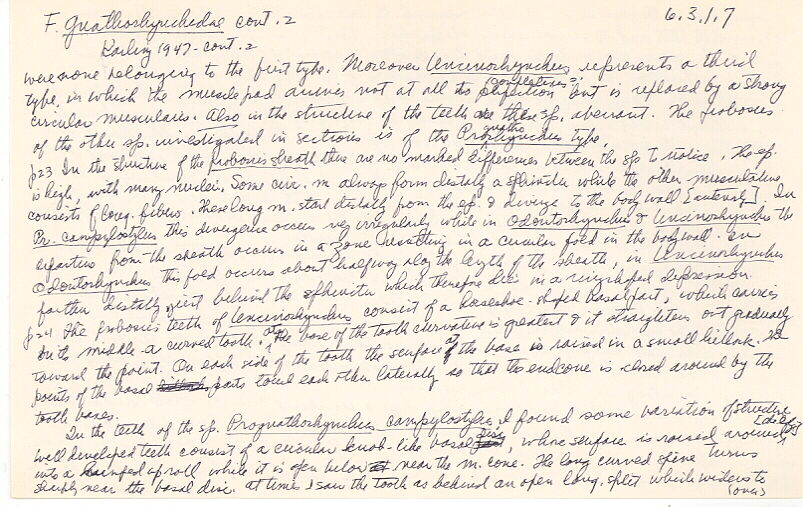 F. Gnathorhynchidae cont. 2
6.3.1.7
Karling 1947 - cont. 2
were none belonging to the first type. Moreover Uncinorhynchus represents a third
type, in which the muscle pad arrives not at all to perfection but is replaced by a strong
circular muscularis. Also in the structure of the teeth is the sp. aberrant. The proboscis
of the other sp. investigated in sections is of the Prognathorhynchus type
p23 In the structure of the proboscis sheath there are no marked differences between the sp to notice. The ep.
is high, with many nuclei. Some circ. m always form distally a sphincter while the other musculature
consists of long. fibers. These long m. start distally from the ep. & diverge to the body wall [anteriorly]. In
Pr. campylostylus this divergence occurs very irregularly while in Odontorhynchus & Uncinorhynchus the
departure from the sheath occurs in a zone resulting in a circular fold in the body wall. In
Odontorhynchus this fold occurs about halfway along the length of the sheath, in Uncinorhynchus
farther distally just behind the sphincter which therefore lies in a ringshaped depression.
p24 The proboscis teeth of Uncinorhynchus consist of a horseshoe-shaped basal part, which carries
in its middle a curved tooth. At the base of the tooth curvature is greatest & it straightens out gradually
toward the point. On each side of the tooth the surface of the base is raised in a small hillock. The
points of the basal parts touch each other laterally so that the endcone is closed around by the
tooth bases.
In the teeth of the sp. Prognathorhynchus campylostylus I found some variation of structure
well developed teeth consist of a circular knob-like basal disc, whose surface is raised around
into a uproll while it is open below near the m. cone. The long curved spine turns
sharply near the basal disc. At times I saw the tooth as behind an open long. split which widens to
(over)